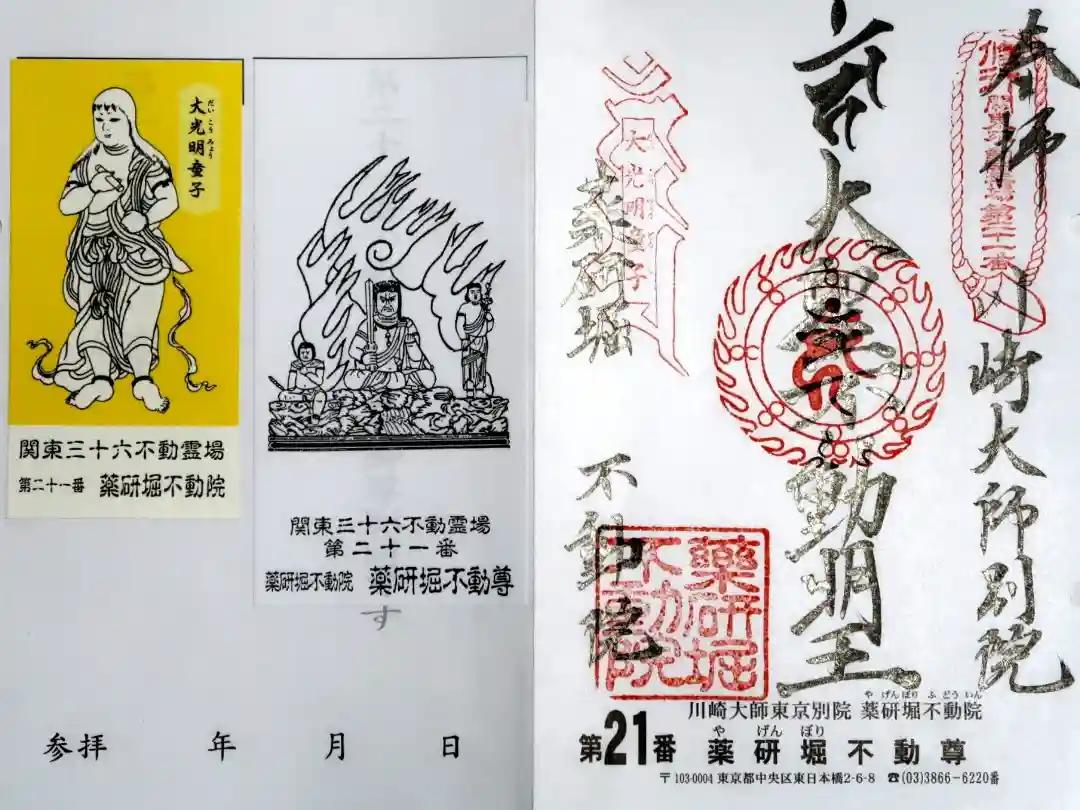 大光明童子
だいこうみょう
関東三十六不動霊場
第二十一番 薬研堀不動院
関東三十六不動霊場
第二十一番
薬研堀不動院 薬研堀不動尊
す
参拝 年 月 日
奉拝
川崎大師別院
大聖不動明王
薬研堀
不動院
大光明童子
薬研堀
不動院
やげんぼりふどういん
川崎大師東京別院 薬研堀不動院
やげんぼり
第21番 薬研堀不動尊
〒103-0004 東京都中央区東日本橋2-6-8 ☎(03)3866-6220番